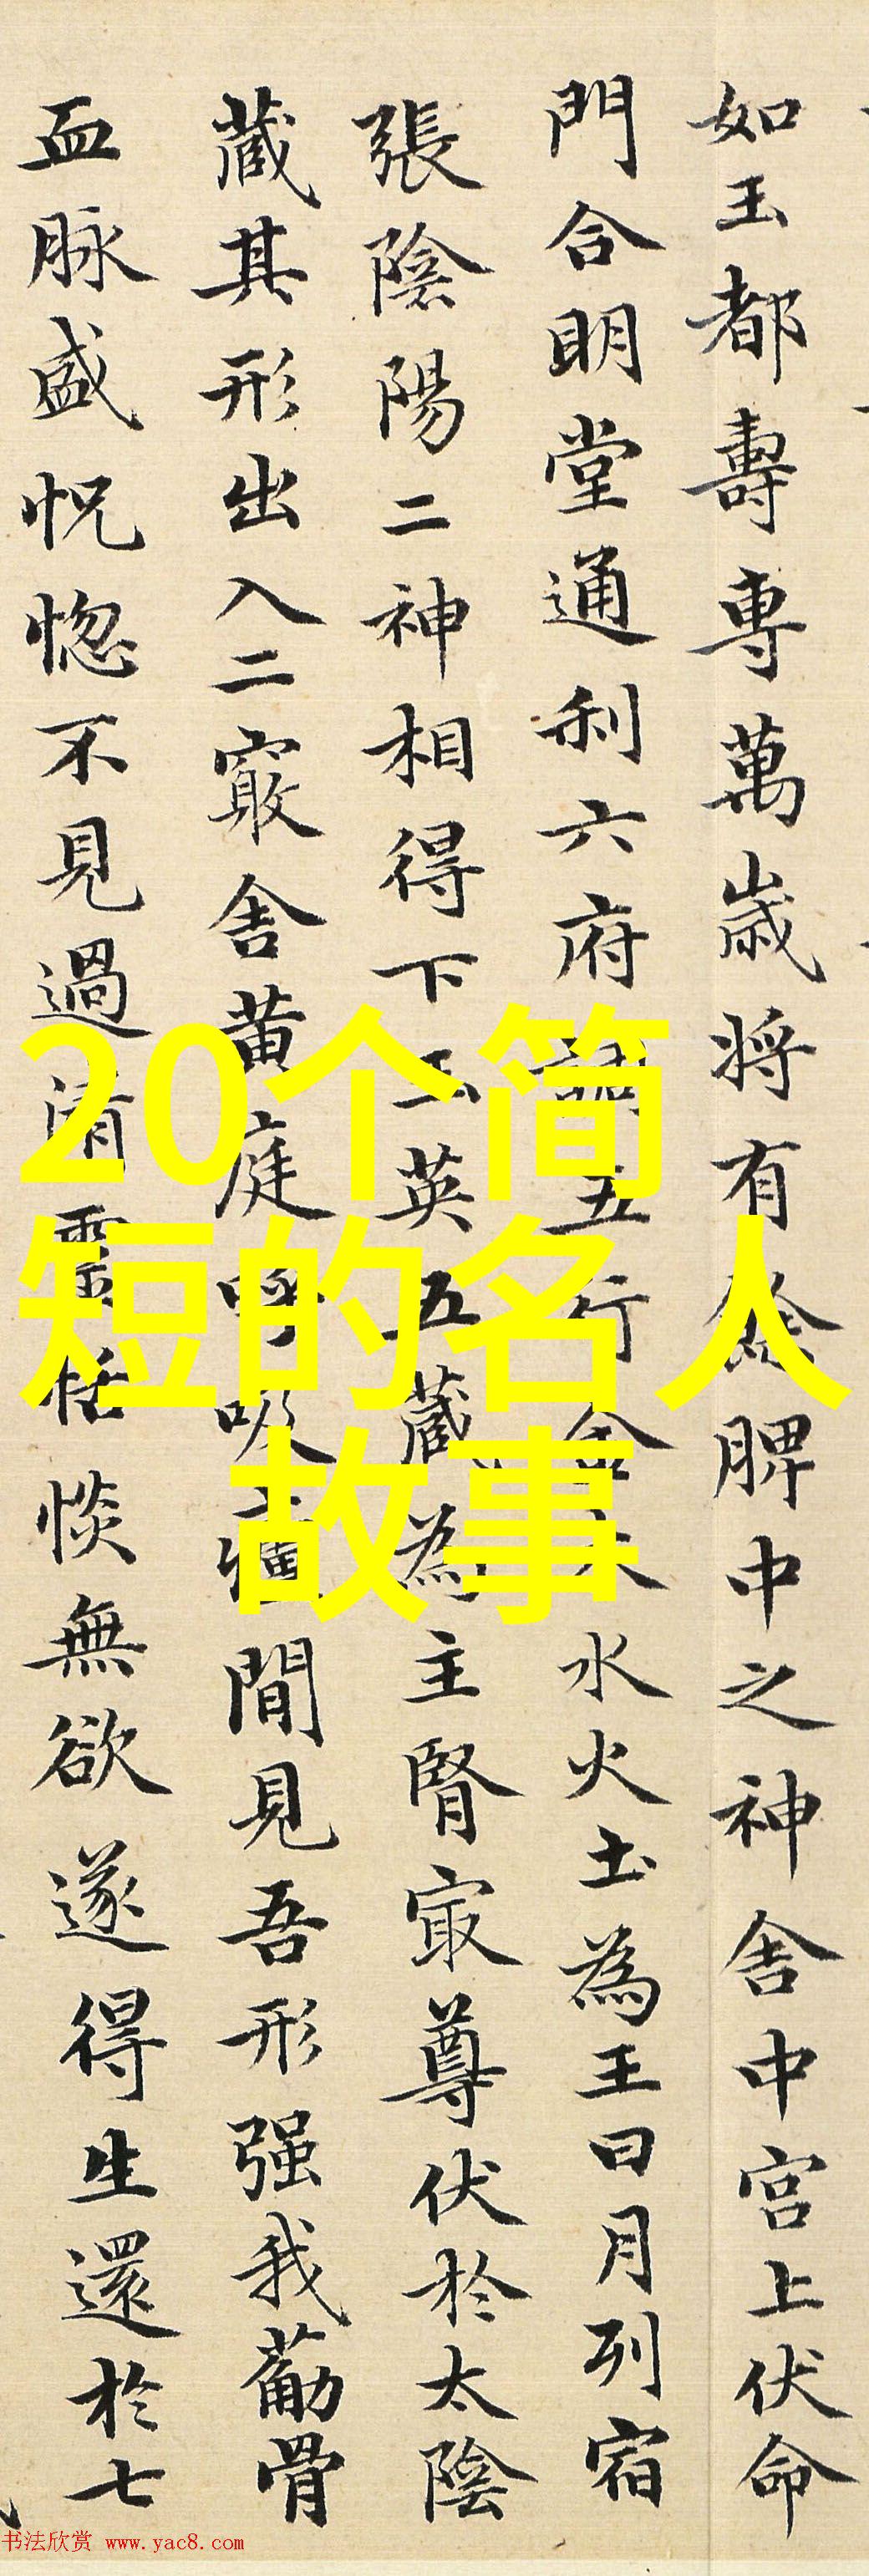 如玉都壽專萬歲將有餘脾中之神舍中宮上伏命
門合明堂通利六府調五行金木水火土為王日月列宿
張陰陽二神相得下玉英五藏為主腎寂尊伏於太陰
藏其形出入二竅舍黄庭呼吸廬間見吾形强我薊骨
血脉盛怳惚不見過清靈恬惔無欲遂得生還於七
20个简
短的名人
故事
书法欣赏 www.yac8.com